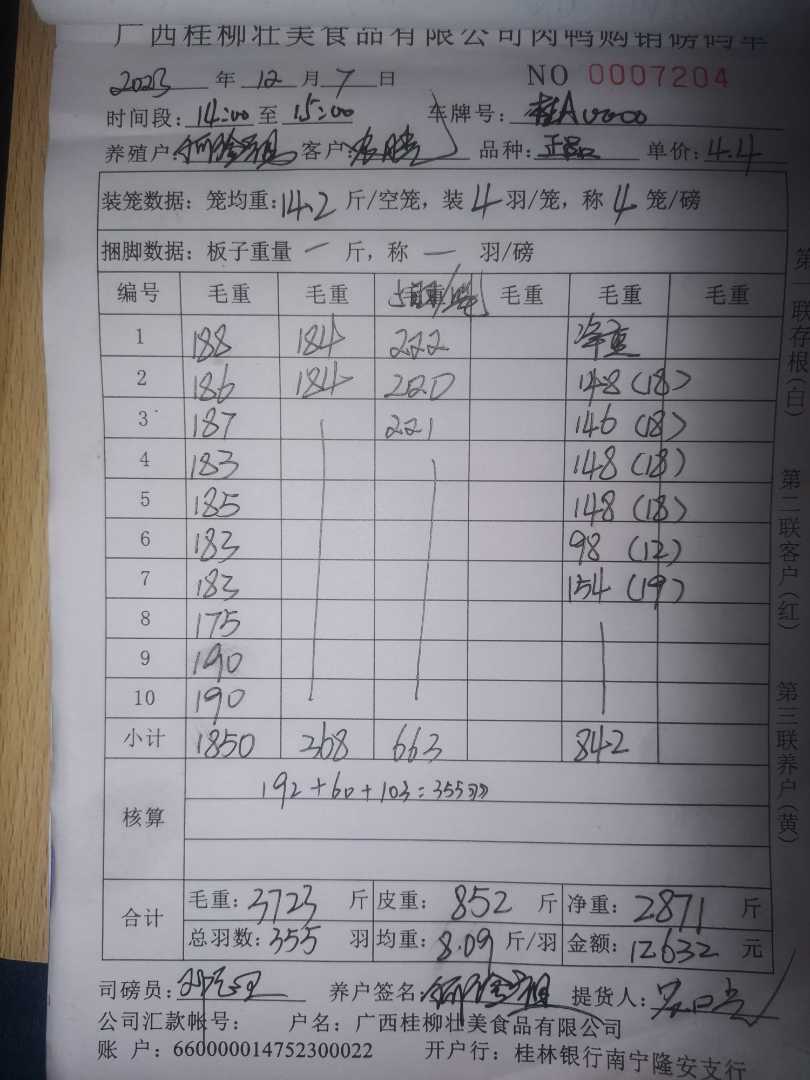 广西桂柳壮美食品有限公司肉鸭购销磅码单
2023 年 12 月 7 日 NO 0007204
时间段: 14:00 至 15:00 车牌号: 桂A0000
养殖户: 客户: 品种: 正品 单价: 4.4
装笼数据: 笼均重: 14.2 斤/空笼, 装 4 羽/笼, 称 4 笼/磅
捆脚数据: 板子重量 一 斤, 称 一 羽/磅
编号 毛重 毛重 毛重 毛重 毛重
1 188 184 222 净重
2 186 184 220 148 (18)
3 187 221 146 (18)
4 183 148 (18)
5 185 148 (18)
6 183 98 (12)
7 183 154 (19)
8 175
9 190
10 190
小计 1850 368 663 842
核算 192+60+103=355羽
合计 毛重: 3723 斤 皮重: 852 斤 净重: 2871 斤
总羽数: 355 羽 均重: 8.09 斤/羽 金额: 12632 元
司磅员: 养户签名: 提货人:
公司汇款帐号: 户名: 广西桂柳壮美食品有限公司
账 户: 660000014752300022 开户行: 桂林银行南宁隆安支行
第一联存根(白)
第二联客户(红)
第三联养户(黄)